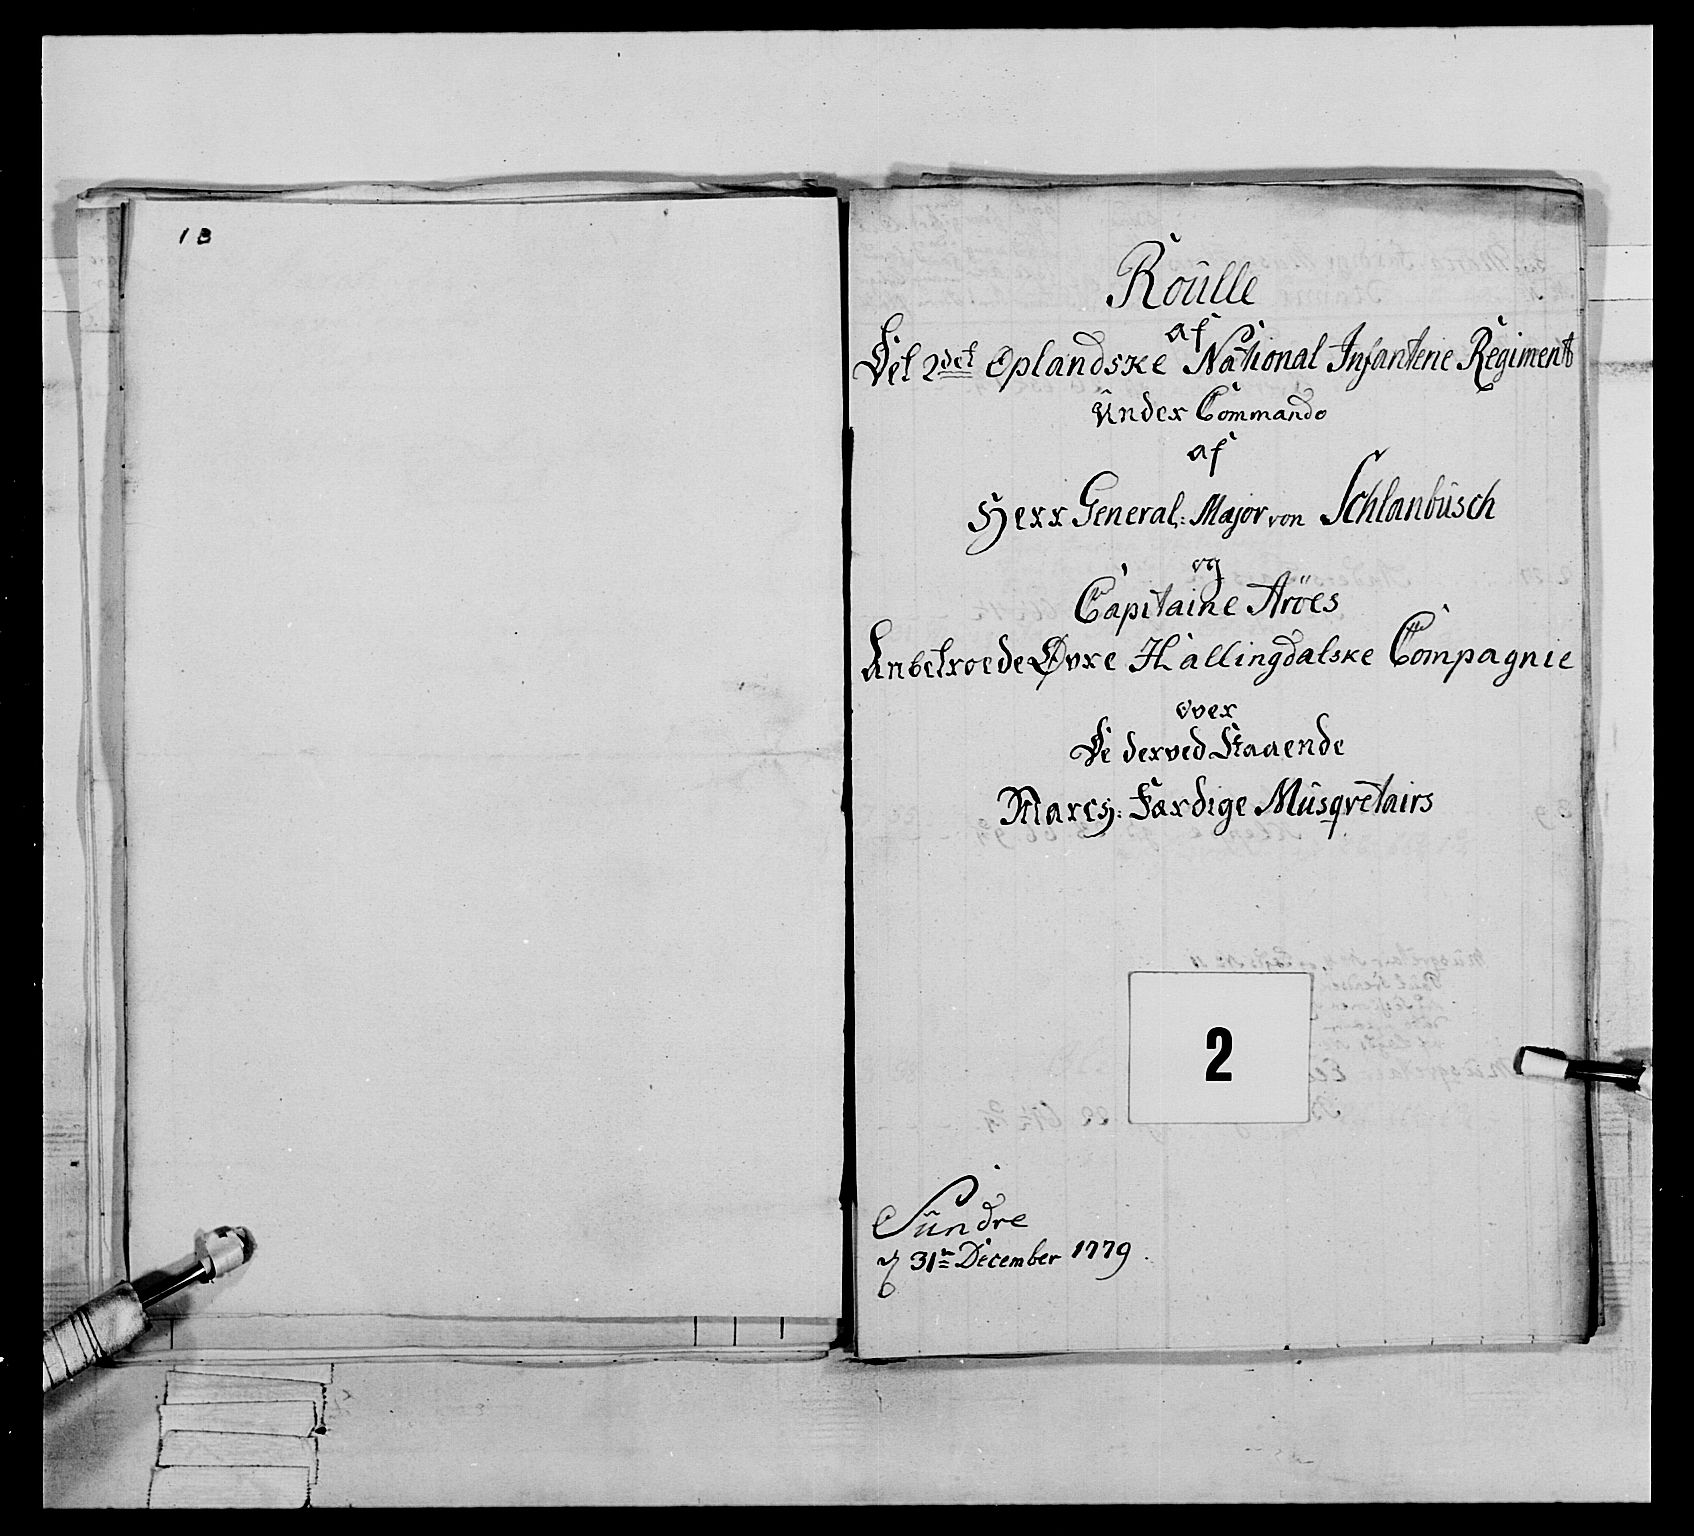 18
Roülle
af
Det 2det Oplandske National Infanterie Regiment
Under Commando
af
Herr General: Major von Schlanbüsch
og
Capitaine Aröes
Anbetroede Øvre Hallingdalske Compagnie
over
De derved Staaende
March: Færdige Müsqvetairs
2
Sündre
31te December 1779